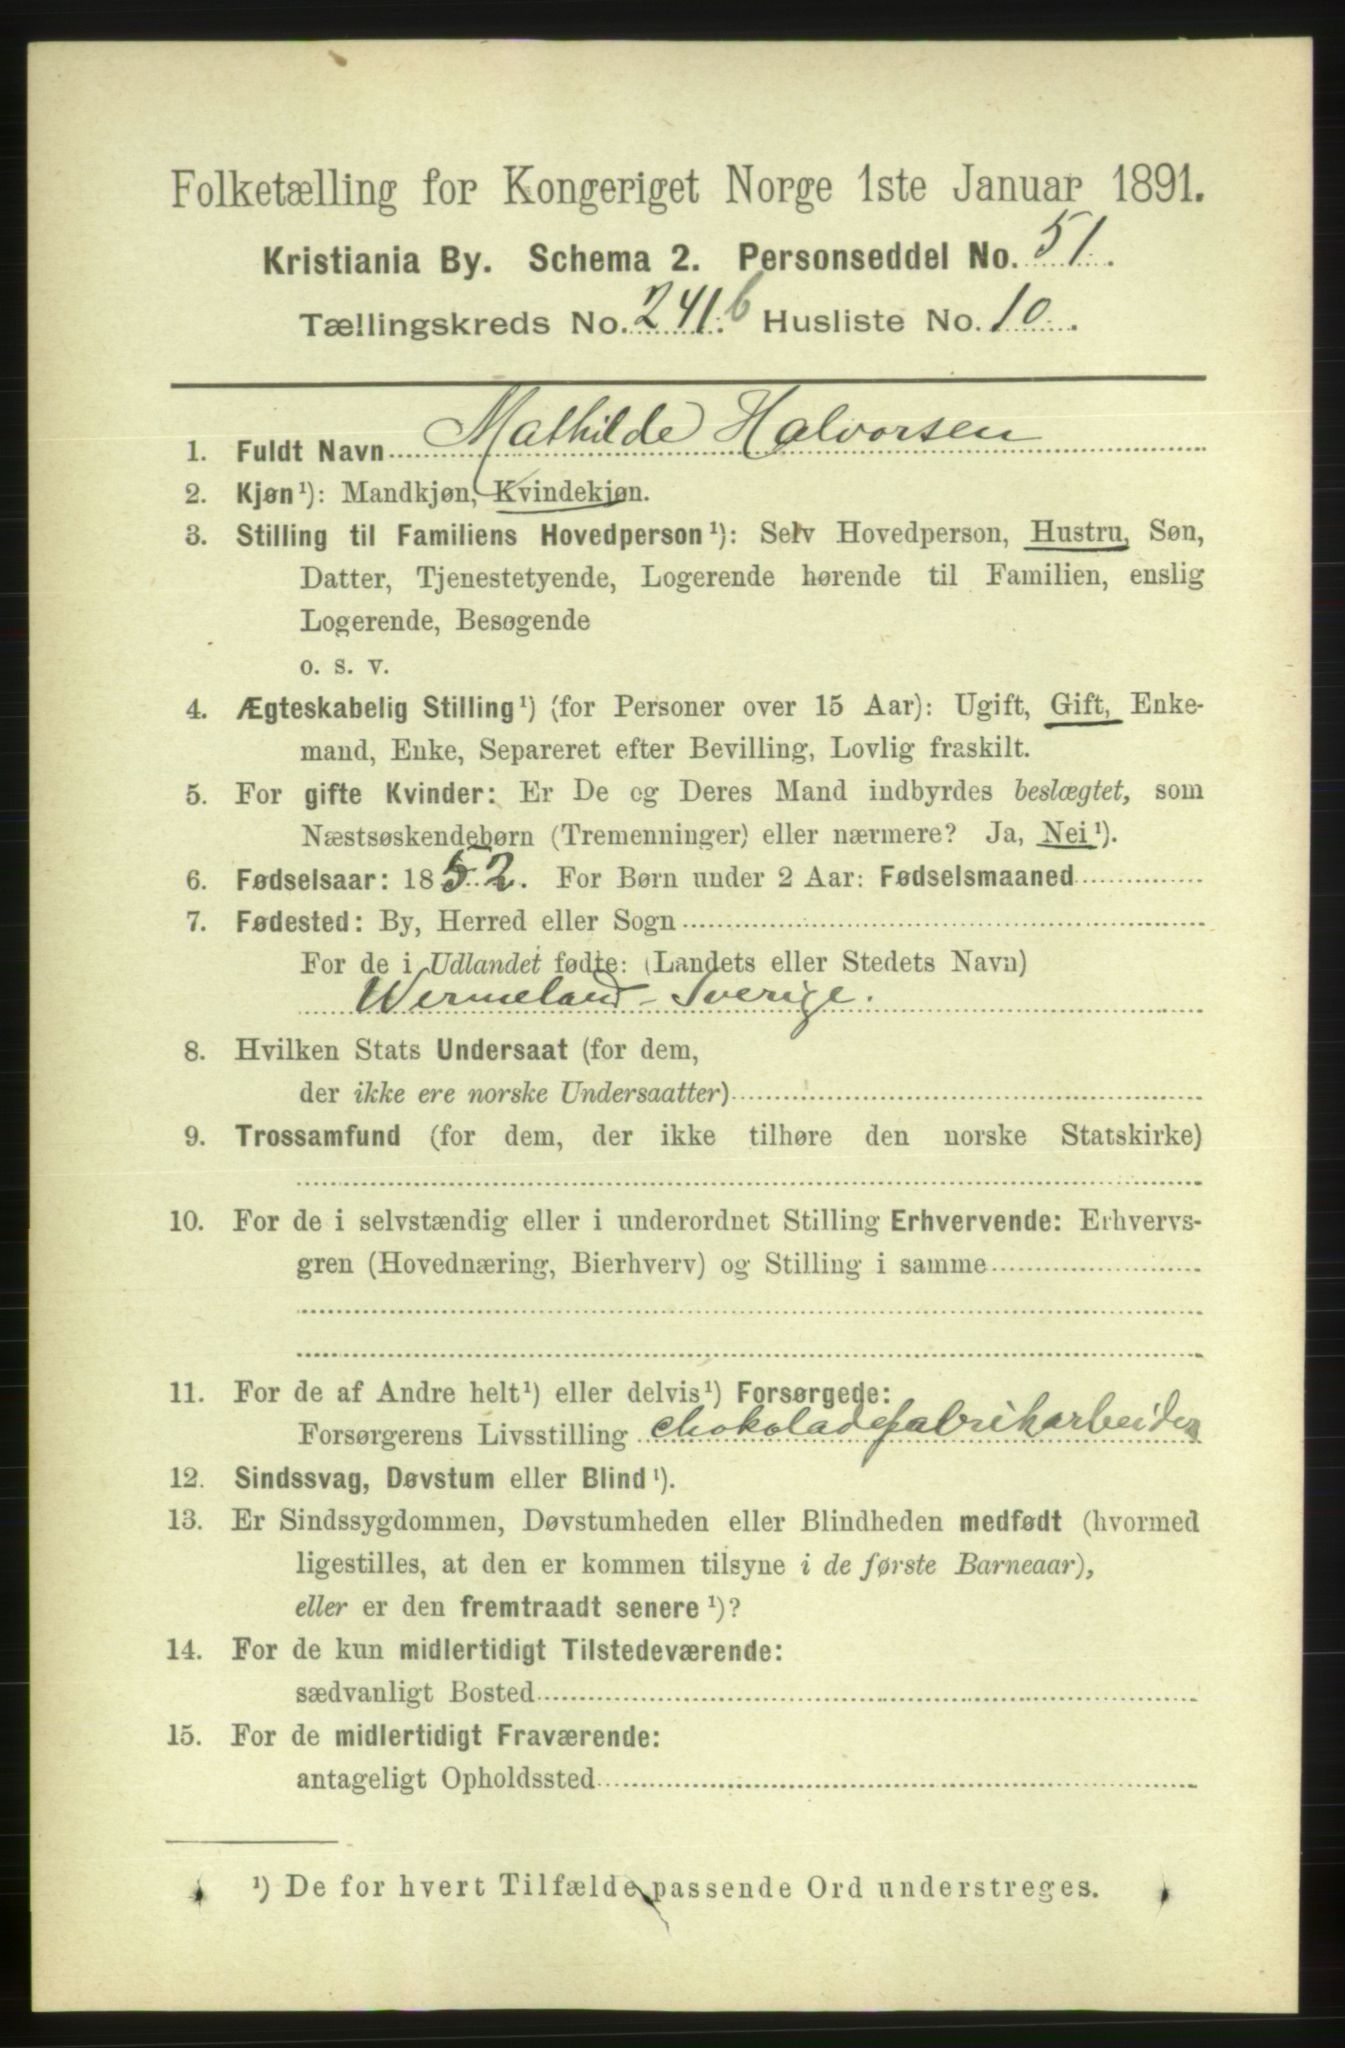 Folketælling for Kongeriget Norge 1ste Januar 1891.
Kristiania By. Schema 2. Personseddel No. 51.
Tællingskreds No. 241.b Husliste No. 10.
1. Fuldt Navn Mathilde Halvorsen
2. Kjøn¹): Mandkjøn, Kvindekjøn.
3. Stilling til Familiens Hovedperson¹): Selv Hovedperson, Hustru, Søn,
Datter, Tjenestetyende, Logerende hørende til Familien, enslig
Logerende, Besøgende
o. s. v.
4. Ægteskabelig Stilling¹) (for Personer over 15 Aar): Ugift, Gift, Enke-
mand, Enke, Separeret efter Bevilling, Lovlig fraskilt.
5. For gifte Kvinder: Er De og Deres Mand indbyrdes beslægtet, som
Næstsøskendebørn (Tremenninger) eller nærmere? Ja, Nei¹).
6. Fødselsaar: 1852. For Børn under 2 Aar: Fødselsmaaned
7. Fødested: By, Herred eller Sogn
For de i Udlandet fødte: (Landets eller Stedets Navn)
Wermeland - Sverige.
8. Hvilken Stats Undersaat (for dem,
der ikke ere norske Undersaatter)
9. Trossamfund (for dem, der ikke tilhøre den norske Statskirke)
10. For de i selvstændig eller i underordnet Stilling Erhvervende: Erhvervs-
gren (Hovednæring, Bierhverv) og Stilling i samme
11. For de af Andre helt¹) eller delvis¹) Forsørgede:
Forsørgerens Livsstilling chokoladefabrikarbeider
12. Sindssvag, Døvstum eller Blind¹).
13. Er Sindssygdommen, Døvstumheden eller Blindheden medfødt (hvormed
ligestilles, at den er kommen tilsyne i de første Barneaar),
eller er den fremtraadt senere¹)?
14. For de kun midlertidigt Tilstedeværende:
sædvanligt Bosted
15. For de midlertidigt Fraværende:
antageligt Opholdssted
¹) De for hvert Tilfælde passende Ord understreges.